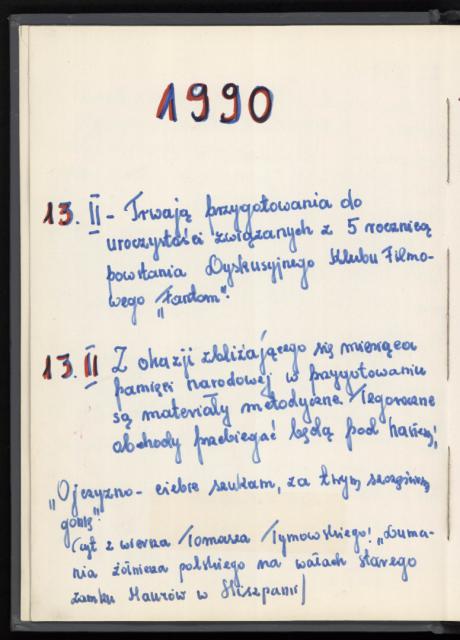 1990
13. II - Trwają przygotowania do
uroczystości związanych z 5 rocznicą
powstania Dyskusyjnego Klubu Filmo-
wego "Fantom".
13. II Z okazji zbliżającego się miesiąca
pamięci narodowej w przygotowaniu
są materiały metodyczne. Tegoroczne
obchody przebiegać będą pod hasłem:
"Ojczyzno - ciebie szukam, za twym szczęściem
gonię"
(cyt z wiersza Tomasza Tymowskiego! "Duma-
nia żołnierza polskiego na wałach starego
zamku Maurów w Hiszpanii)